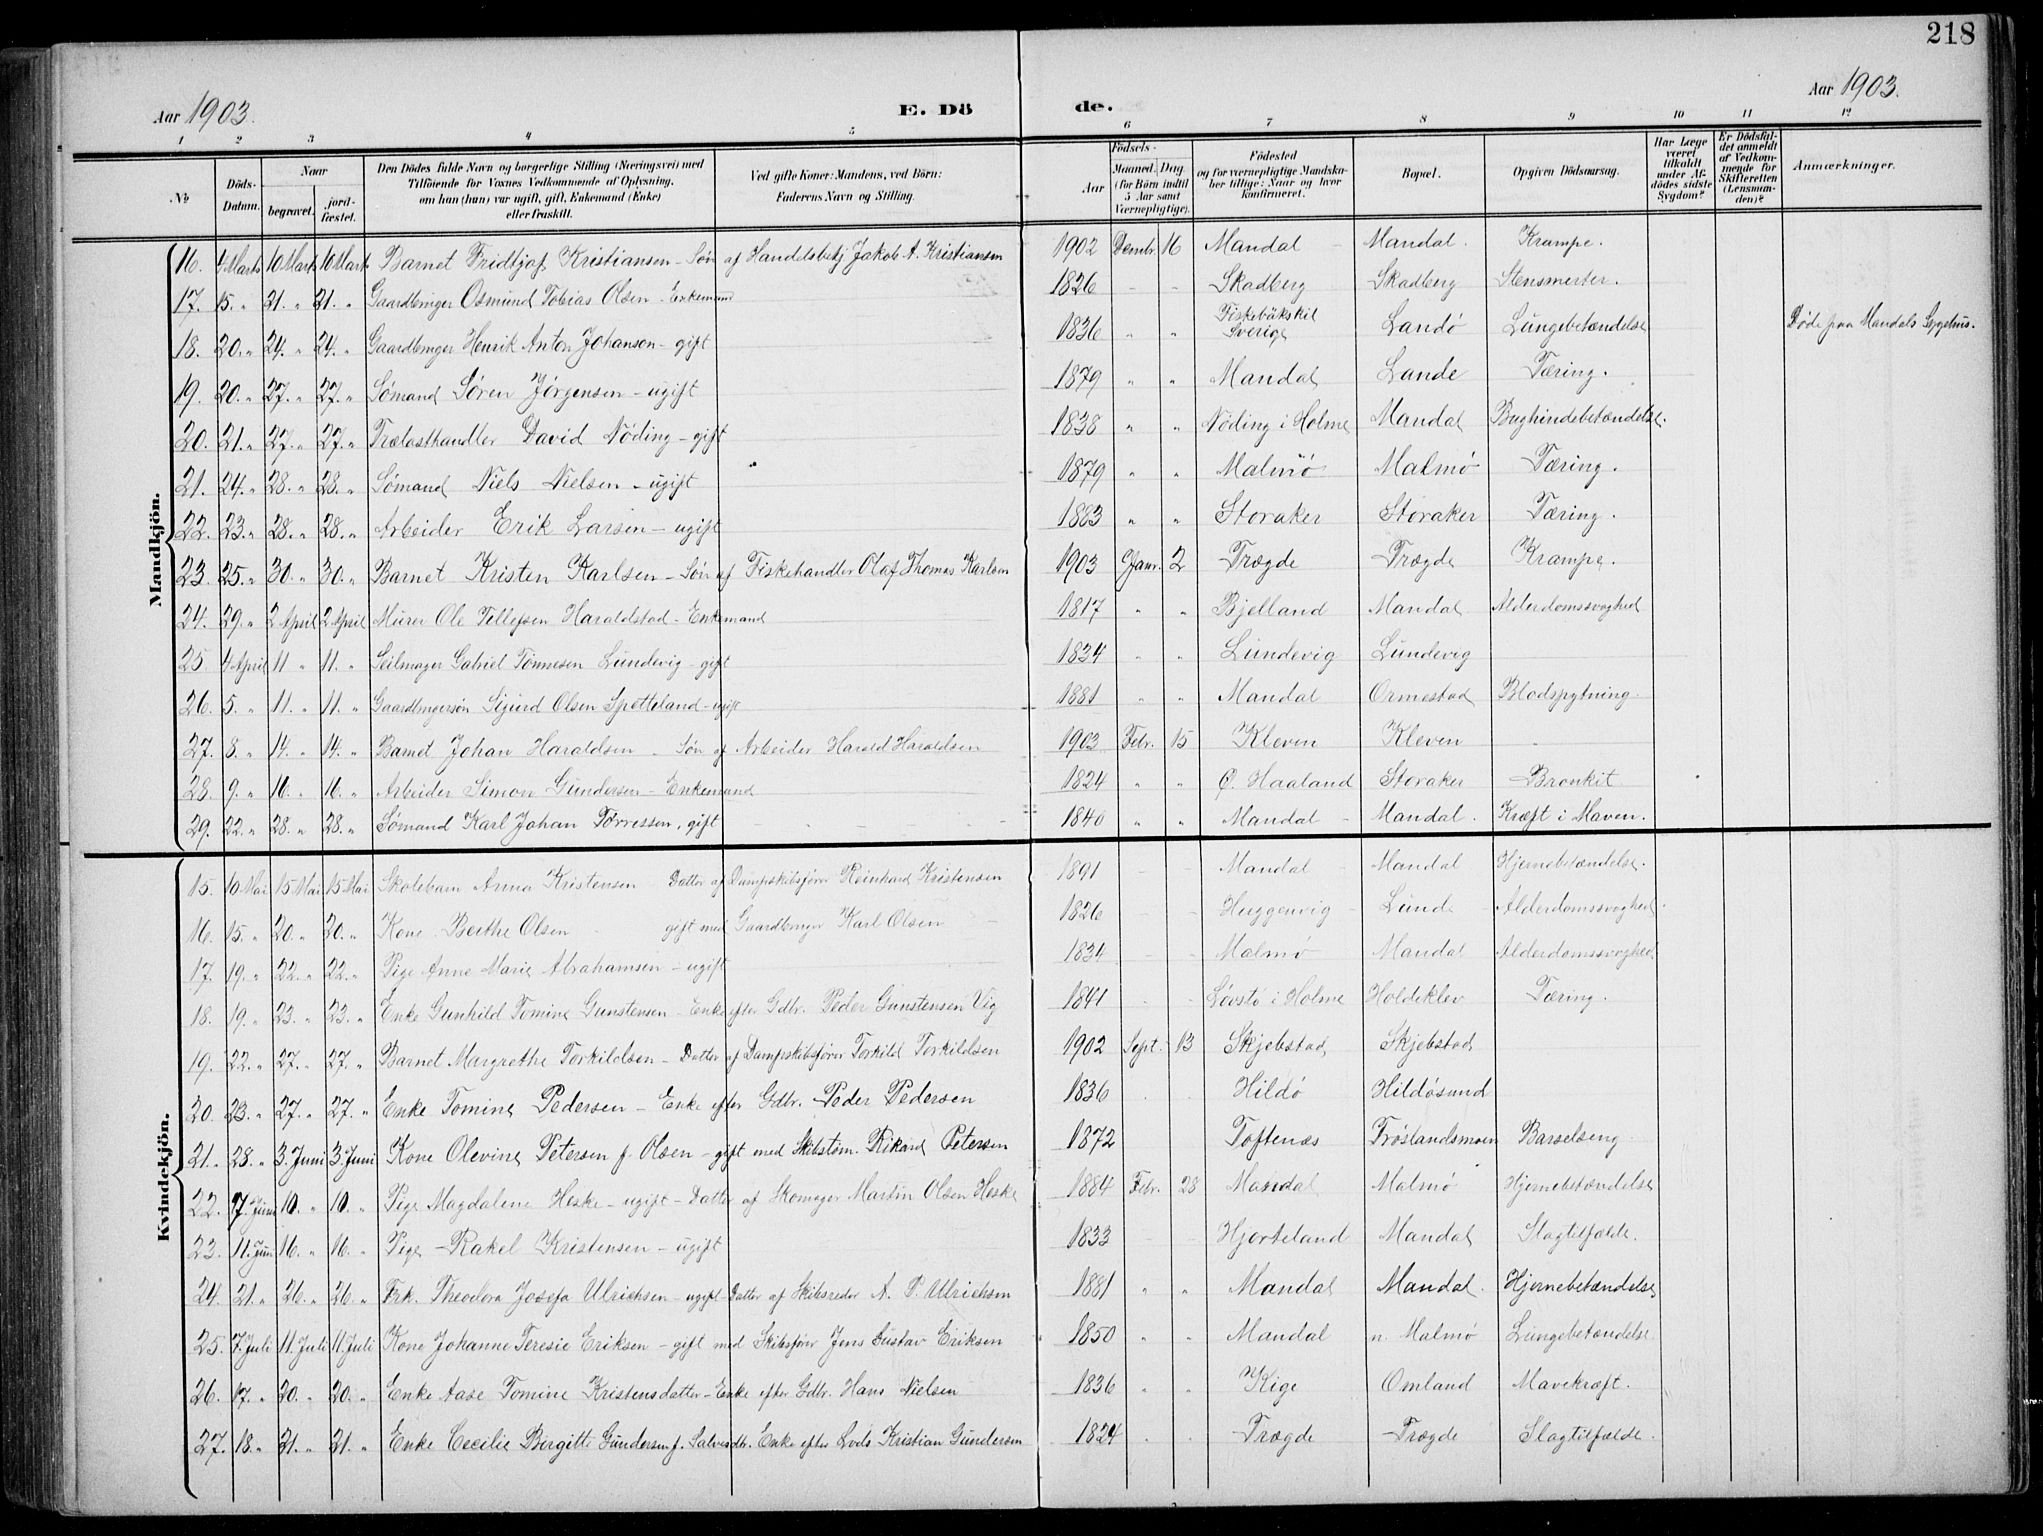 218
Aar 1903.
E. Dö de.
Aar 1903.
1 2 3 4 5 6 7 8 9 10 11 12
№ Döds-Datum. Naar begravet. jord-fæstet. Den Dödes fulde Navn og borgerlige Stilling (Næringsvei) med Tilföiende for Voxnes Vedkommende af Oplysning, om han (hun) var ugift, gift, Enkemand (Enke) eller fraskilt. Ved gifte Koner: Mandens, ved Börn: Faderens Navn og Stilling. Födsels- Aar Maaned. Dag. (for Börn indtil 5 Aar samt Værnepligtige). Födested og for værnepligtige Mandska-ber tillige: Naar og hvor konfirmeret. Bopæl. Opgiven Dödsaarsag. Har Læge været tilkaldt under Af-dödes sidste Sygdom? Er Dödsfal-det anmeldt af Vedkom-mende for Skifteretten (Lensman-den)? Anmærkninger.
Mandkjön.
16. 4 Marts 10 Marts 10 Marts Barnet Fridtjof Kristiansen - Søn af Handelsbetj. Jakob A. Kristiansen 1902 Decmbr. 16 Mandal Mandal. Krampe.
17. 15. " 21. " 21. " Gaardbruger Osmund Tobias Olsen - Enkemand 1826 Skadberg Skadberg Stensmerter.
18. 20. " 24. " 24. " Gaardbruger Henrik Anton Johansen - gift 1836 " " Fiskebäkskil Sverige Landö Lungebetændelse Døde paa Mandals Sygehus.
19. 20. " 27. " 27. " Sømand Søren Jørgensen - ugift 1879 " " Mandal Lande Tæring.
20. 21. " 27. " 27. " Trælasthandler David Nöding - gift 1838 " " Nöding i Holme Mandal Bughindebetændelse.
21. 24. " 28. " 28. " Sømand Niels Nielsen - ugift 1879 " " Malmö Malmö Tæring.
22. 23. " 28. " 28. " Arbeider Erik Larsen - ugift 1883 " " Storaker Storaker Tæring.
23. 25. " 30. " 30. " Barnet Kristen Karlsen - Søn af Fiskehandler Olaf Thomas Karlsen 1903 Janr. 2 Trægde Trægde Krampe.
24. 29. " 2 April 2 April Murer Ole Tellefsen Haraldstad - Enkemand 1817 " " Bjelland Mandal Alderdomssvaghed
25 4 April 11 " 11. " Seilmager Gabriel Tønnesen Lundevig - gift 1834 " " Lundevig Lundevig
26. 5. " 11. " 11. " Gaardbrugersøn Sigurd Olsen Spetteland - ugift 1881 " " Mandal Ormestad Blodspytning.
27. 8. " 14. " 14. " Barnet Johan Haraldsen - Søn af Arbeider Harald Haraldsen 1903 Febr. 15 Kleven Kleven
28. 9. " 16. " 16. " Arbeider Simon Gundersen - Enkemand 1824 " " Ö. Haaland Storaker Bronkit
29. 22. " 28. " 28. " Sømand Karl Johan Tørressen, gift 1840 " " Mandal Mandal. Kræft i Maven.
Kvindekjön.
15. 10 Mai 15 Mai 15 Mai Skolebarn Anna Kristensen Datter af Dampskibsfører Reinhard Kristensen 1891 Mandal Mandal Hjernebetændelse.
16. 15. " 20. " 20. " Kone Berthe Olsen gift med Gaardbruger Karl Olsen 1826 Huggenvig Lunde Alderdomssvaghed.
17. 19. " 22. " 22. " Pige Anne Marie Abrahamsen - ugift 1834 Malmö Mandal Alderdomssvaghed.
18. 19. " 23. " 23. " Enke Gunhild Tomine Gunstensen - Enke efter Gdbr. Peder Gunstensen Vig 1841 Lövstö i Holme Holdeklev Tæring.
19. 22. " 27. " 27. " Barnet Margrethe Torkildsen - Datter af Dampskibsfører Torkild Torkildsen 1902 Sept. 13 Skjebstad Skjebstad
20. 23. " 27. " 27. " Enke Tomine Pedersen - Enke efter Gdbr. Peder Pedersen 1836 Hildö Hildösund
21. 28. " 3. Juni 3. Juni Kone Olevine Petersen f. Olsen - gift med Skibstøm. Rikard Petersen 1872 Toftenæs Fröslandsmoen Barselseng
22. 7. Juni 10. " 10. " Pige Magdalene Heske - ugift - Datter af Skomager Martin Olsen Heske 1884 Febr. 28 Mandal Malmö Hjernebetændelse
23. 11. Juni 16. " 16. " Pige Rakel Kristensen - ugift 1833 Hjorteland Mandal Slagtilfælde.
24. 21. " 26. " 26. " Frk. Theodora Josefa Ulrichsen - ugift - Datter af Skibsreder A. P. Ulrichsen 1881 " " Mandal Mandal. Hjernebetændelse
25. 7. Juli 11. Juli 11. Juli Kone Johanne Teresie Eriksen - gift med Skibsfører Jens Gustav Eriksen 1850 " " Mandal n. Malmö Lungebetændelse.
26. 17. " 20. " 20. " Enke Aase Tomine Kristensdatter - Enke efter Gdbr. Hans Nielsen 1836 " " Kige Omland Mavekræft.
27. 18. " 21. " 21. " Enke Cecilie Birgitte Gundersen f. Salvesdtr. Enke efter Lods Kristian Gundersen 1824 Trægde Trægde Slagtilfælde.